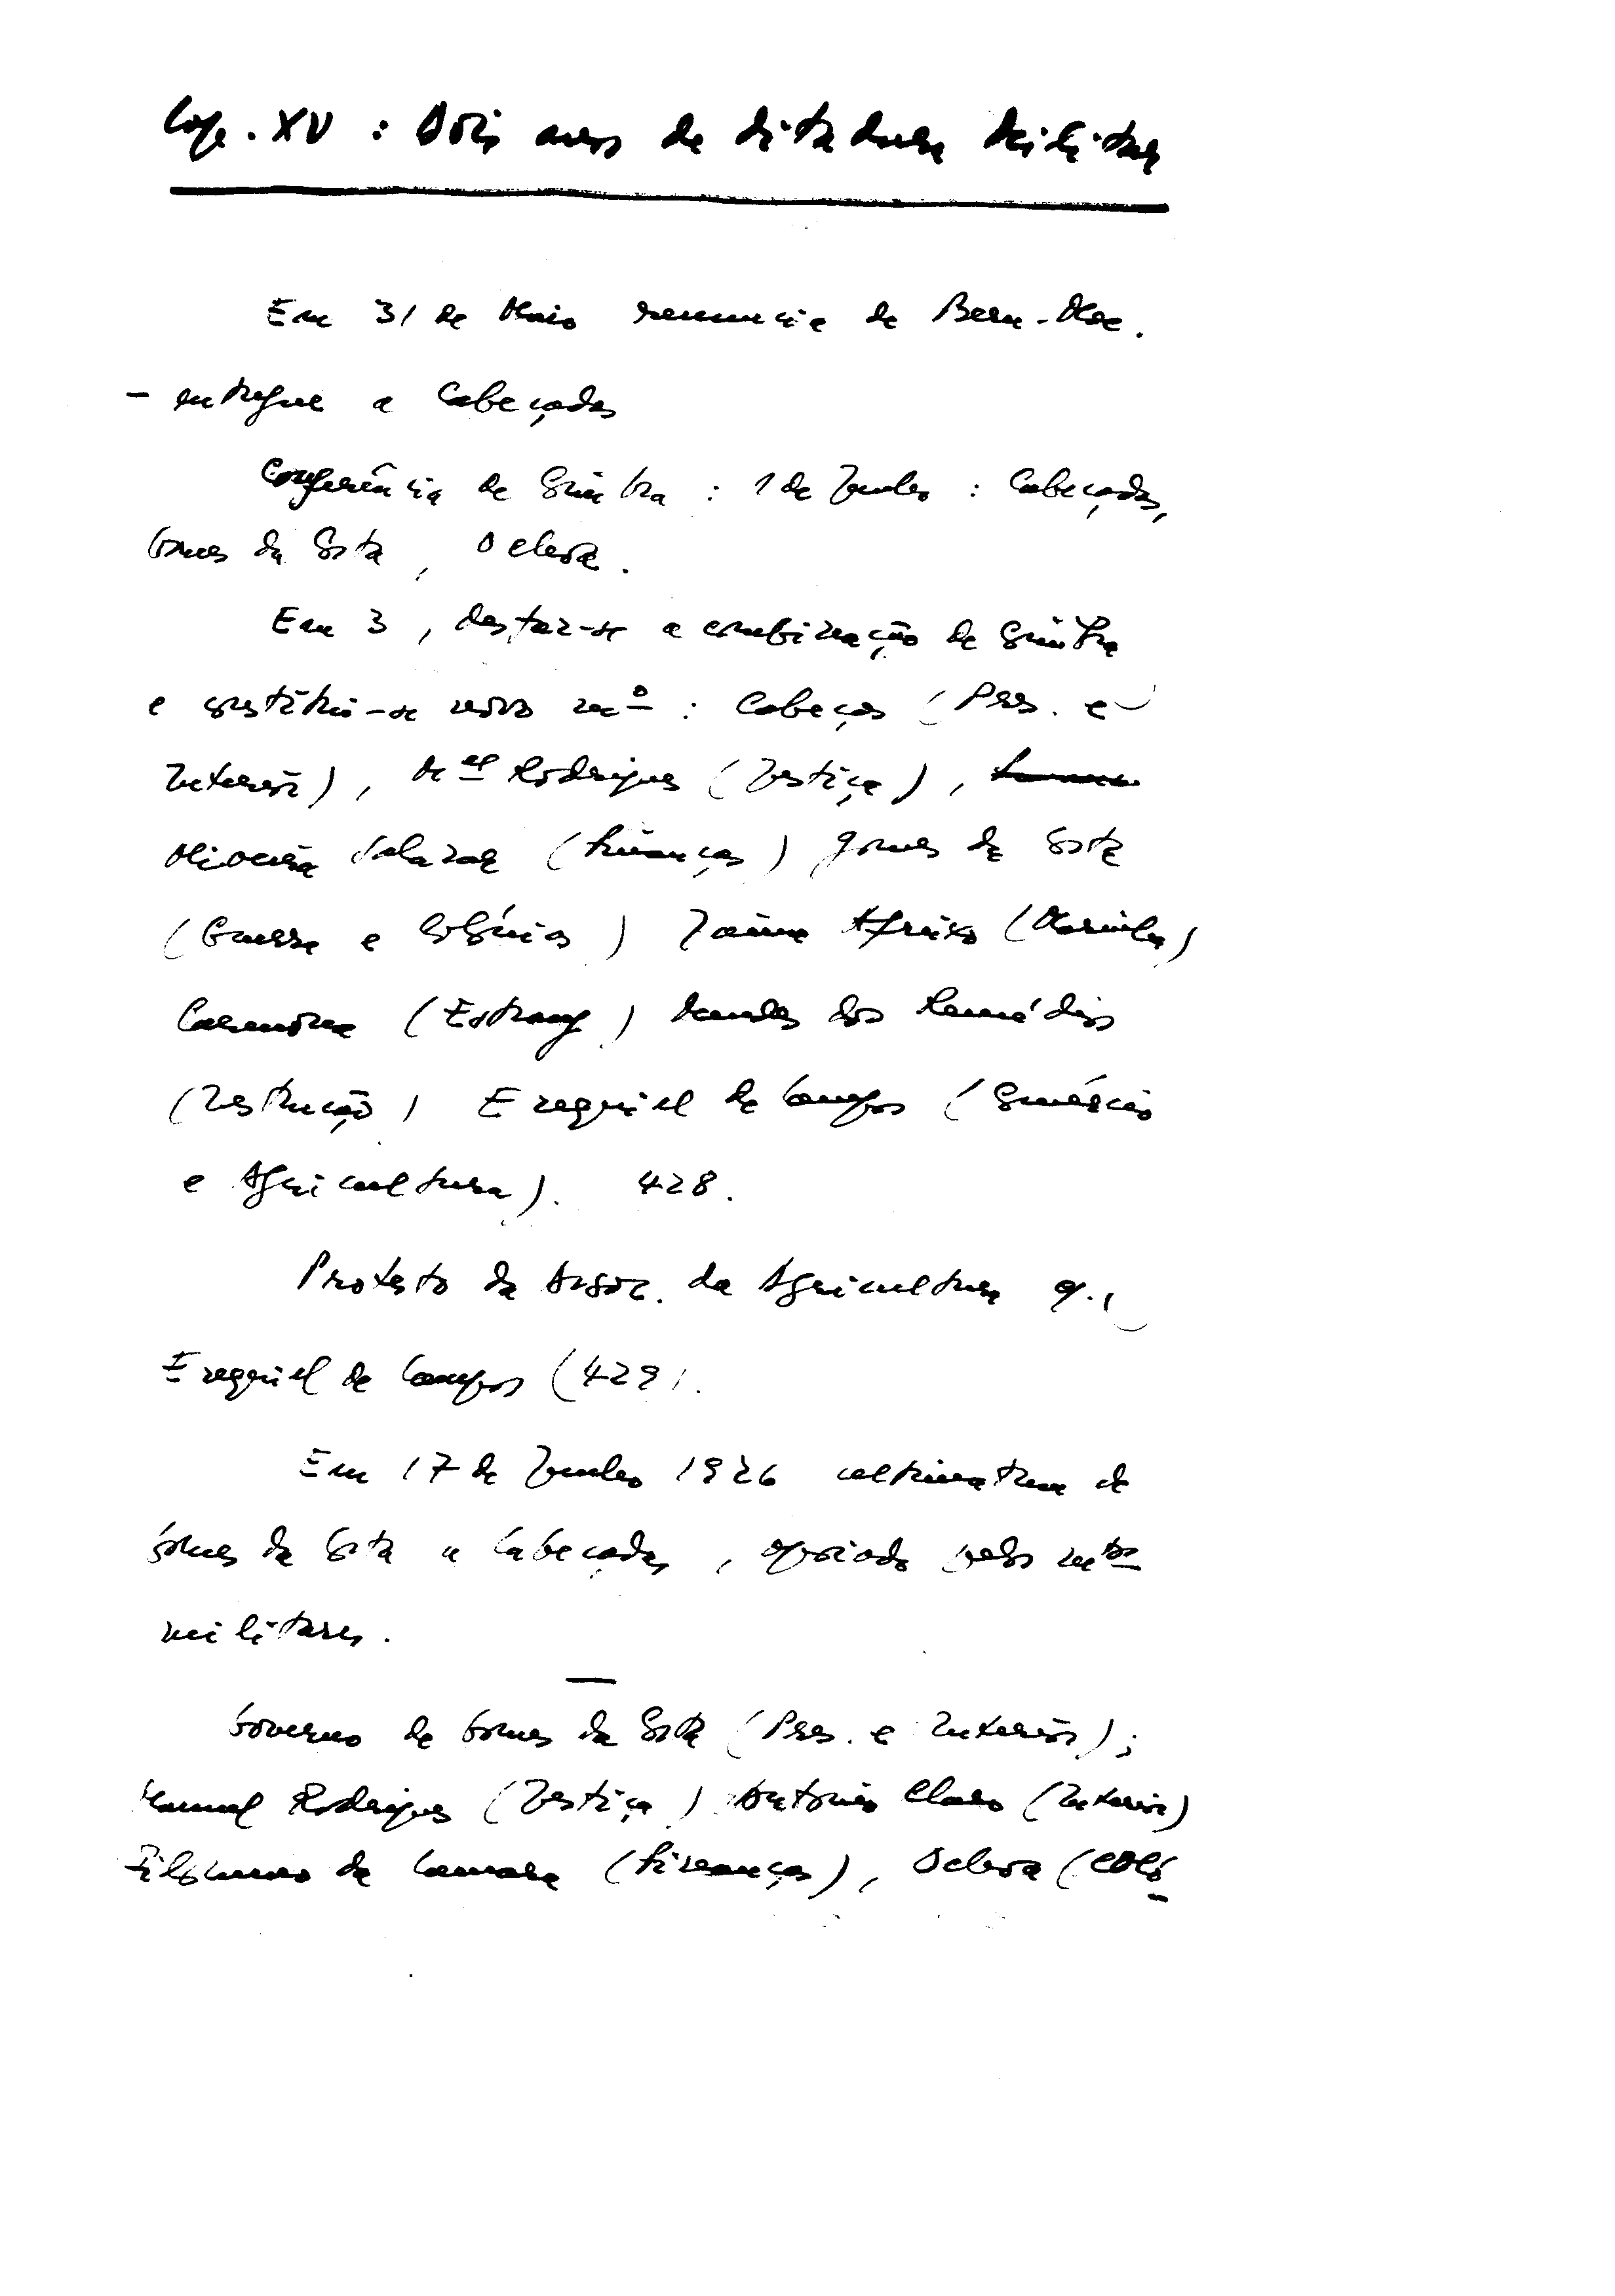 Cap. XV : Dois anos de ditadura militar
Em 31 de Maio renuncia de Bern. Mac.
- entregue a Cabeçadas
Conferência de Sintra : 1 de Junho : Cabeçadas,
Gomes da Costa, Ochoa.
Em 3, desfaz-se a combinação de Sintra
e constitui-se novo mº : Cabeças (Pres. e
Interior), Mel Rodrigues (Justiça),
Oliveira Salazar (Finanças) Gomes da Costa
(Guerra e Colónias) Jaime Afreixo (Marinha)
Carmona (Estrang.) Mendes dos Remédios
(Instrução) Ezequiel de Campos (Comércio
e Agricultura). 428.
Protesto da Assoc. da Agricultura q.
Ezequiel de Campos (429).
Em 17 de Junho 1926 ultimatum de
Gomes da Costa a Cabeçadas, apoiado pelos mtos
militares.
Governo de Gomes da Costa (Pres. e Interior);
Manuel Rodrigues (Justiça) António Claro (Interior)
Filomeno da Camara (Finanças), Ochoa (Coló